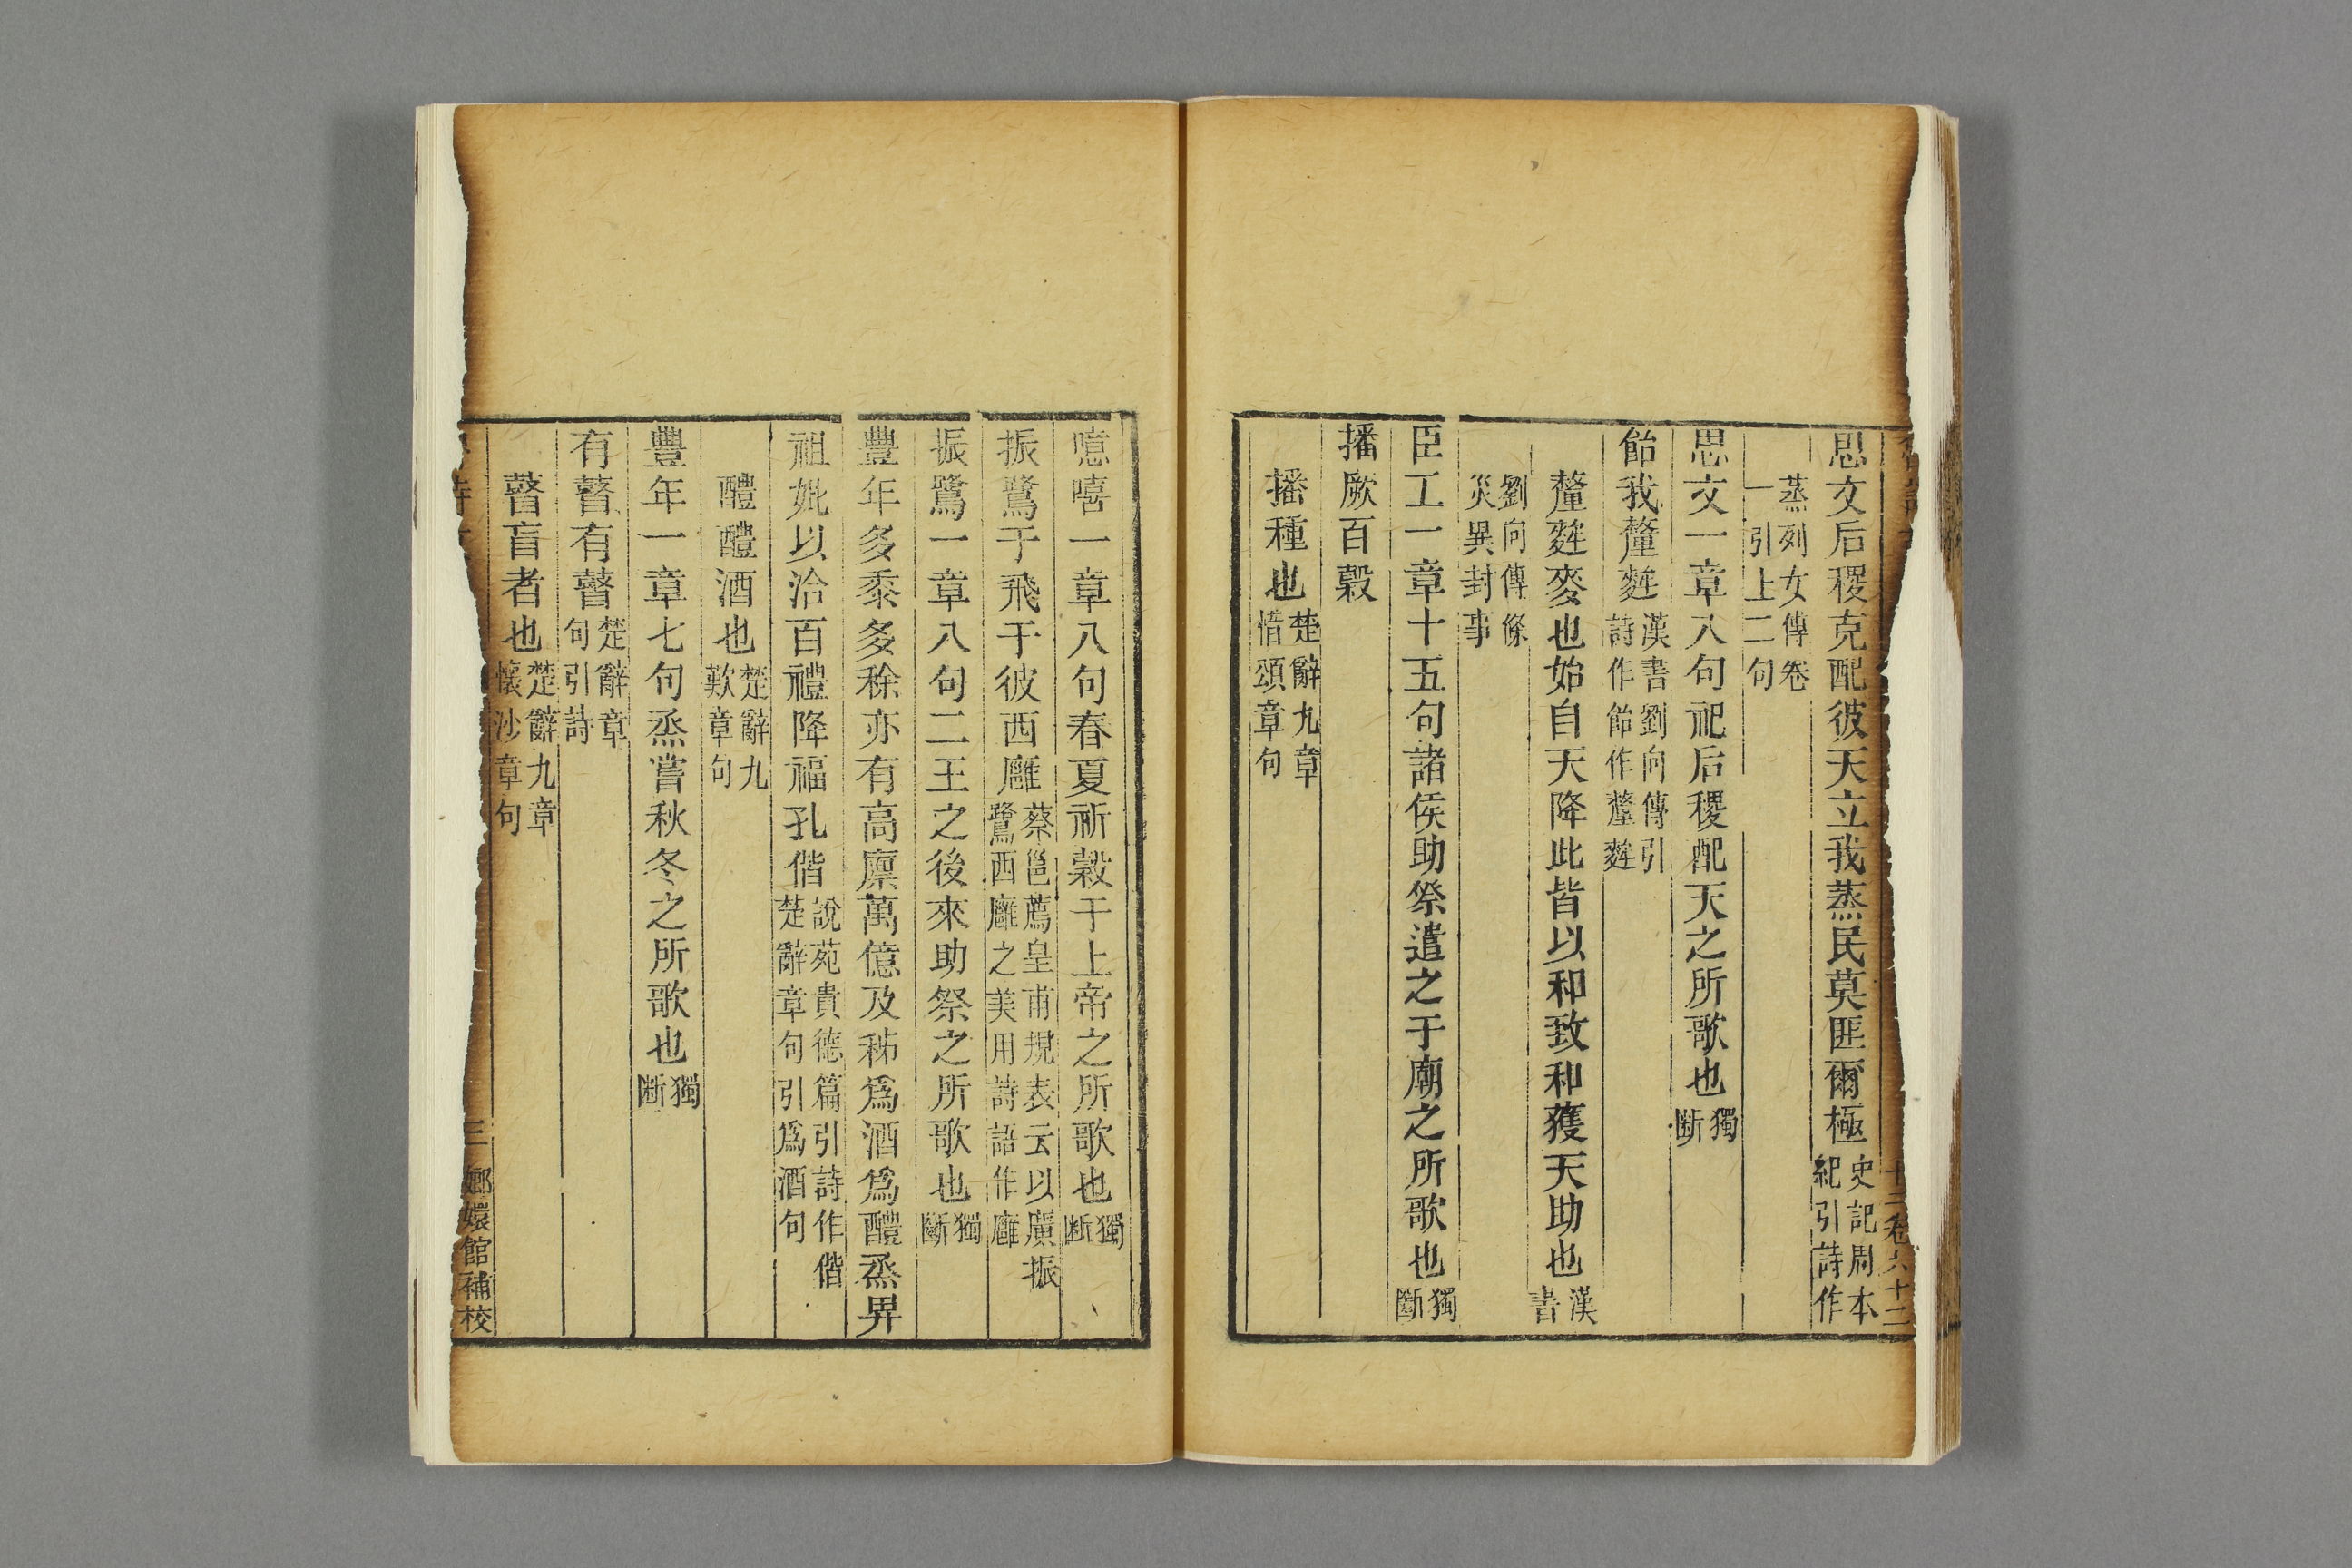 思文后稷克配彼天立我蒸民莫匪爾極史記周本紀引詩作
蒸列女傳卷一引上二句
思文一章八句祀后稷配天之所歌也獨斷
飴我釐麰漢書劉向傳引詩作飴作釐麰
釐麰麥也始自天降此皆以和致和獲天助也漢書
劉向傳條災異封事
臣工一章十五句諸侯助祭遣之于廟之所歌也獨斷
播厥百穀
播種也楚辭九章惜頌章句
噫嘻一章八句春夏祈穀于上帝之所歌也獨断
振鷺于飛于彼西雝蔡邕薦皇甫規表云以廣振鷺西雝之美用詩語作雝
振鷺一章八句二王之後來助祭之所歌也獨斷
豐年多黍多稌亦有高廪萬億及秭爲酒爲醴烝畀
祖妣以洽百禮降福孔偕說苑貴德篇引詩作偕楚辭章句引爲酒句
醴醴酒也楚辭九歎章句
豐年一章七句烝嘗秋冬之所歌也獨断
有瞽有瞽楚辭章句引詩
瞽盲者也楚辭九章懷沙章句
三 嫏嬛館補校